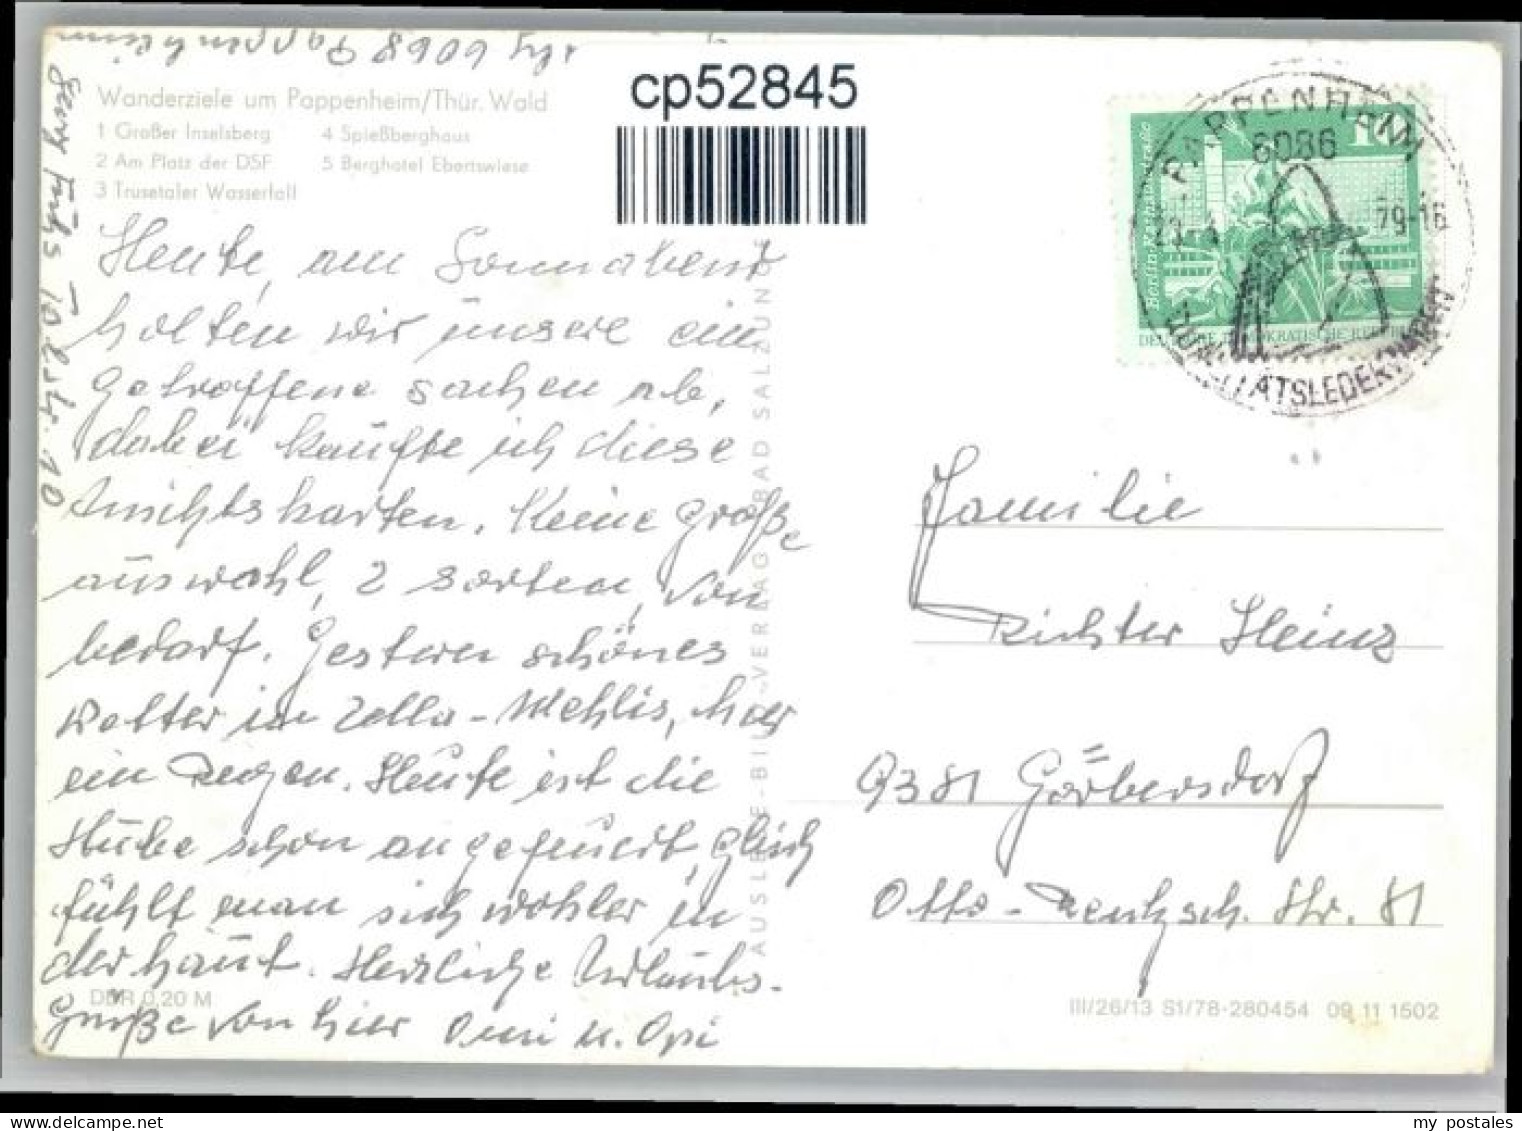 cp52845
Wanderziele um Pappenheim/Thür. Wald
1 Großer Inselsberg 4 Spießberghaus
2 Am Platz der DSF 5 Berghotel Ebertswiese
3 Trusetaler Wasserfall
Heute, am Sonnabend
holten wir unsere ein
getroffene sachen ab,
dabei kaufte ich diese
Ansichtskarten. Keine große
auswahl, 2 sorten, von
bedarf. Gestern schönes
Wetter in Zella-Mehlis, hier
ein Regen. Heute ist die
Stube schon angefeuert, gleich
fühlt man sich wohler in
der haut. Herzliche Urlaubs-
Grüße von hier Omi u. Opi
6068 Pappenheim
DDR 0,20 M
AUSLESE-BILD-VERLAG BAD SALZUNGEN
PAPPENHEIM
6086
79-16
10
DEUTSCHE DEMOKRATISCHE REPUBLIK
Familie
Richter Heinz
9381 Görbersdorf
Otto-Rentzsch. Str. 81
III/26/13 S1/78-280454 09 11 1502
my postales